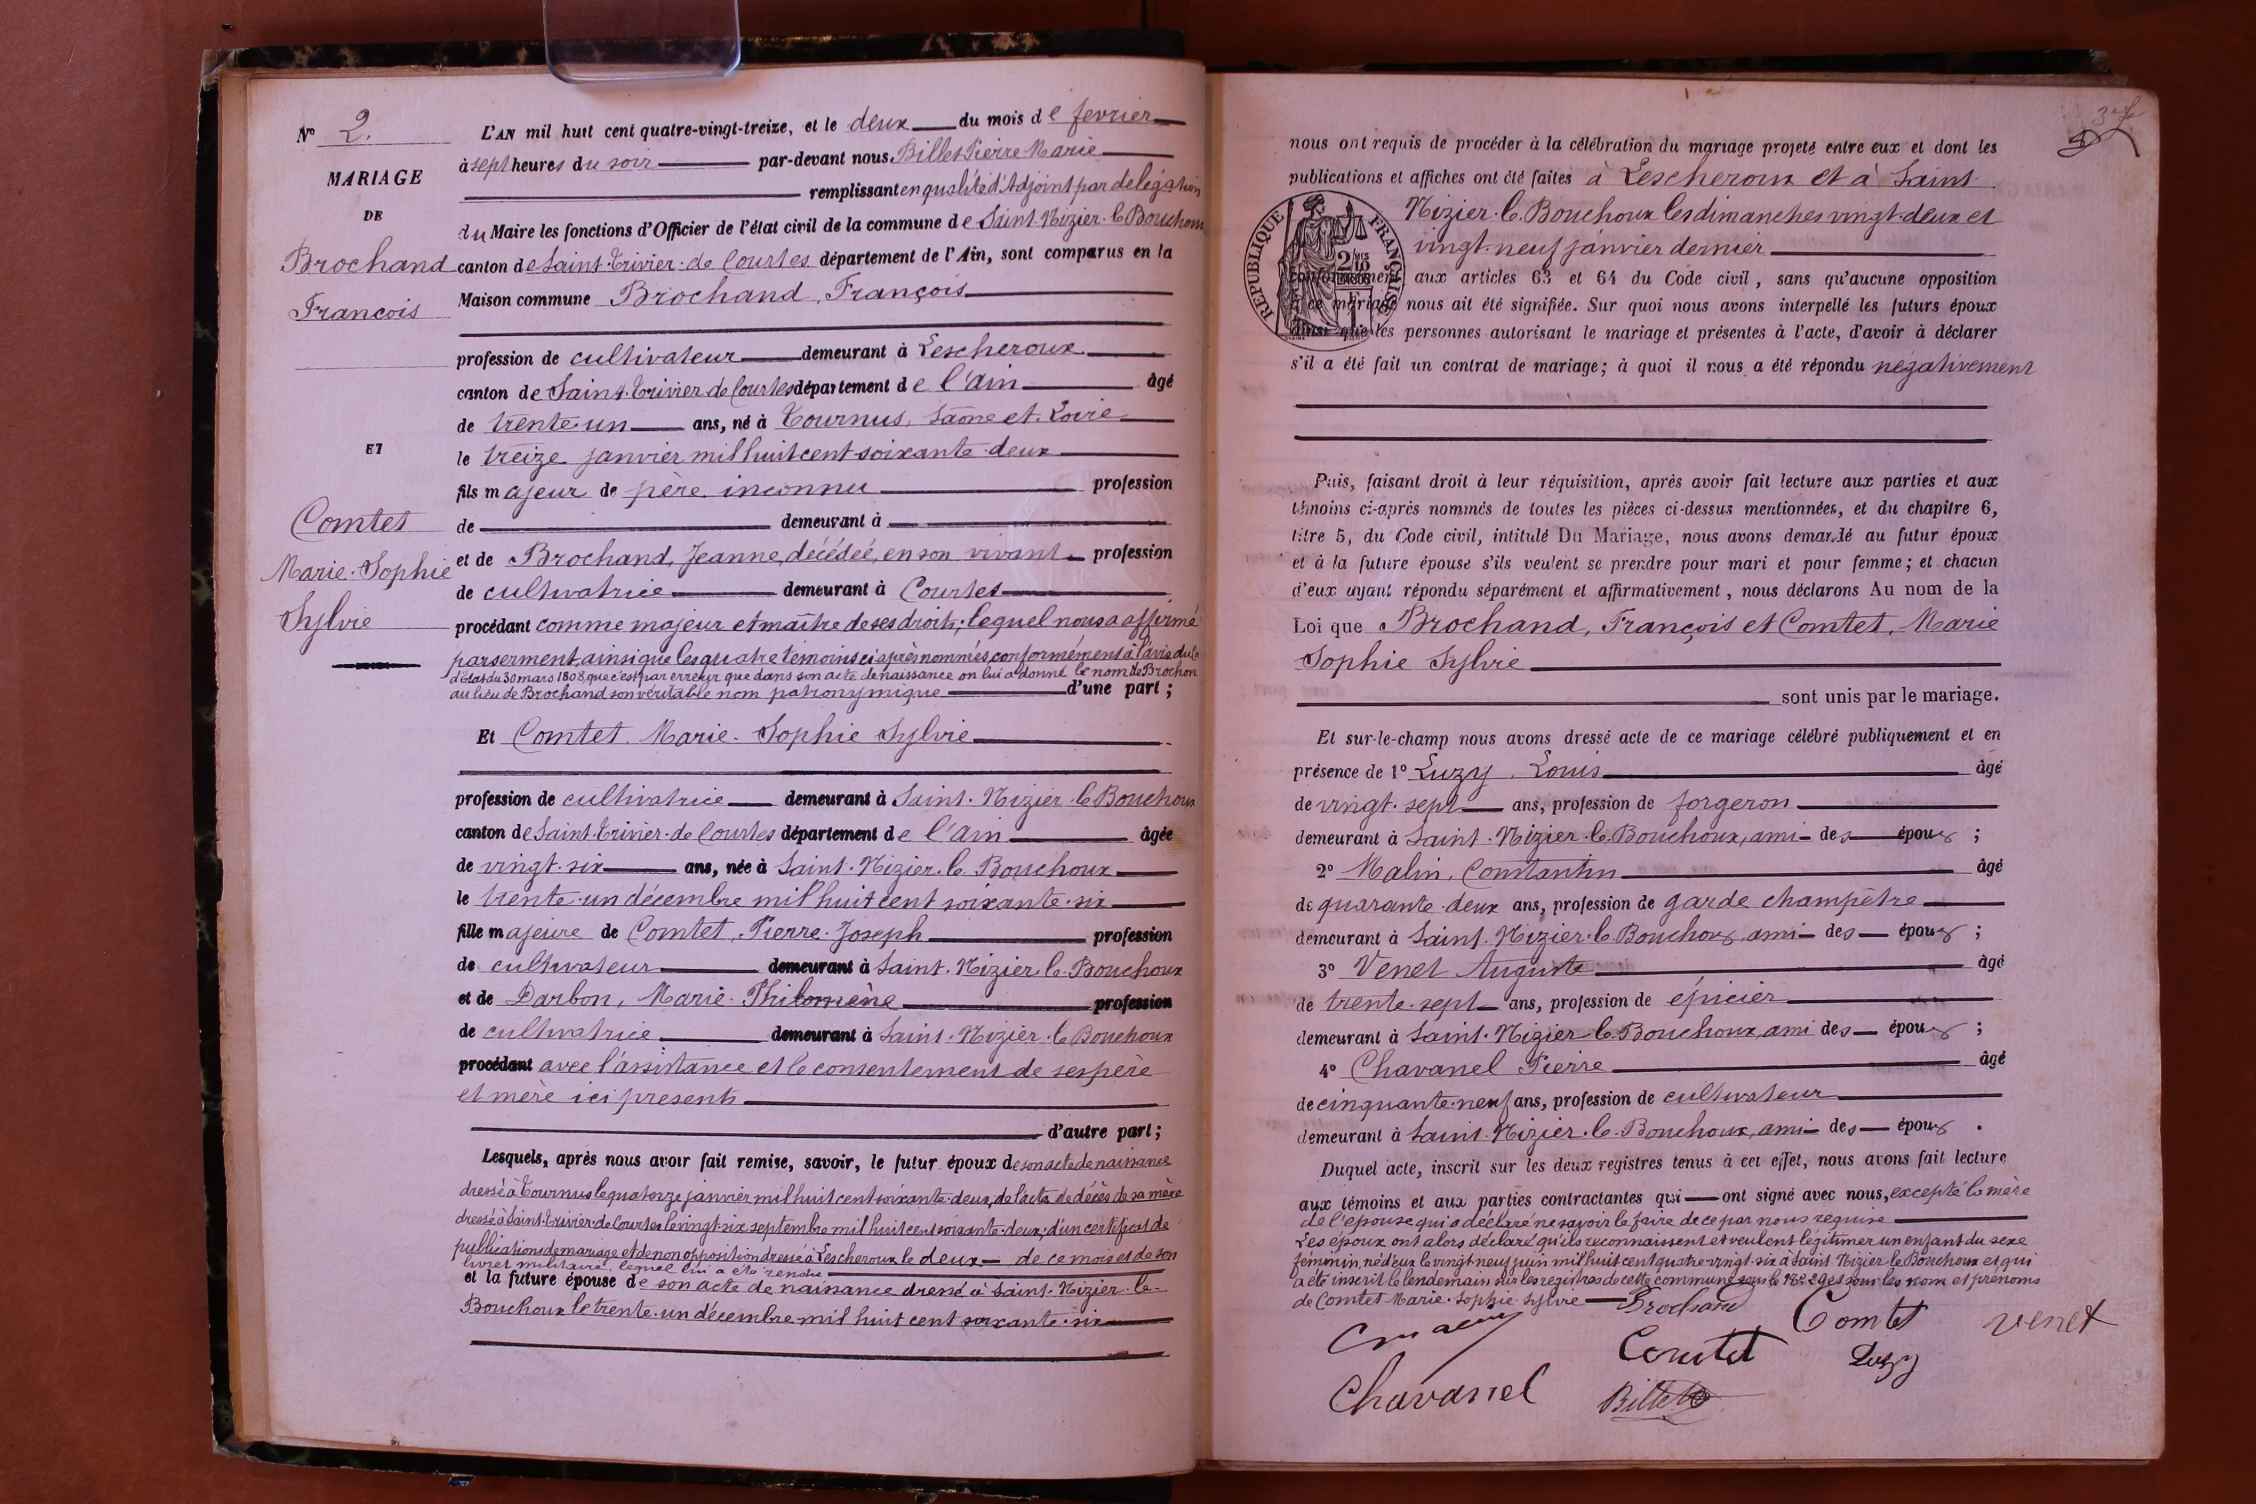 Nº 2.
MARIAGE
DE
Brochand
François
ET
Comtet
Marie-Sophie
Sylvie
L'AN mil huit cent quatre-vingt-treize, et le deux du mois de fevrier
à sept heures du soir par-devant nous Billet Pierre Marie
remplissant en qualité d'Adjoint par délégation
du Maire les fonctions d'Officier de l'état civil de la commune de Saint-Nizier-le-Bouchoux
canton de Saint-Trivier-de Courtes département de l'Ain, sont comparus en la
Maison commune Brochand, François
profession de cultivateur demeurant à Lescheroux
canton de Saint-Trivier de Courtes département de l'Ain âgé
de trente-un ans, né à Tournus, Saône et Loire
le treize janvier mil huit cent soixante-deux
fils majeur de père inconnu profession
de demeurant à
et de Brochand, Jeanne, décédée, en son vivant profession
de cultivatrice demeurant à Courtes
procédant comme majeur et maître de ses droits; lequel nous a affirmé
par serment ainsi que les quatre témoins ci après nommés, conformément à l'avis du
d'état du 30 mars 1808, que c'est par erreur que dans son acte de naissance on lui a donné le nom de Brochon
au lieu de Brochand son véritable nom patronymique d'une part;
Et Comtet Marie-Sophie Sylvie
profession de cultivatrice demeurant à Saint-Nizier-le Bouchoux
canton de Saint-Trivier-de Courtes département de l'Ain âgée
de vingt-six ans, née à Saint-Nizier-le Bouchoux
le trente-un décembre mil huit cent soixante-six
fille majeure de Comtet, Pierre-Joseph profession
de cultivateur demeurant à Saint-Nizier le Bouchoux
et de Darbon, Marie-Philomène profession
de cultivatrice demeurant à Saint-Nizier-le Bouchoux
procédant avec l'assistance et le consentement de ses père
et mère ici présents
d'autre part;
Lesquels, après nous avoir fait remise, savoir, le futur époux de son acte de naissance
dressé à Tournus le quatorze janvier mil huit cent soixante-deux, de l'acte de décès de sa mère
dressé à Saint-Trivier-de Courtes le vingt-six septembre mil huit cent soixante-deux; d'un certificat de
publications de mariage et de non opposition dressé à Lescheroux le deux de ce mois et de son
livret militaire, lequel lui a été rendu
et la future épouse de son acte de naissance dressé à Saint-Nizier-le-
Bouchoux le trente-un décembre mil huit cent soixante-six
nous ont requis de procéder à la célébration du mariage projeté entre eux et dont les
publications et affiches ont été faites à Lescheroux et à Saint
Nizier-le-Bouchoux les dimanches vingt-deux et
vingt-neuf janvier dernier
REPUBLIQUE FRANÇAISE
conformément aux articles 63 et 64 du Code civil, sans qu'aucune opposition
à ce mariage nous ait été signifiée. Sur quoi nous avons interpellé les futurs époux
ainsi que les personnes autorisant le mariage et présentes à l'acte, d'avoir à déclarer
s'il a été fait un contrat de mariage; à quoi il nous a été répondu négativement
Puis, faisant droit à leur réquisition, après avoir fait lecture aux parties et aux
témoins ci-après nommés de toutes les pièces ci-dessus mentionnées, et du chapitre 6,
titre 5, du Code civil, intitulé Du Mariage, nous avons demandé au futur époux
et à la future épouse s'ils veulent se prendre pour mari et pour femme; et chacun
d'eux ayant répondu séparément et affirmativement, nous déclarons Au nom de la
Loi que Brochand, François et Comtet, Marie
Sophie Sylvie
sont unis par le mariage.
Et sur-le-champ nous avons dressé acte de ce mariage célébré publiquement et en
présence de 1º Luzy, Louis âgé
de vingt-sept ans, profession de forgeron
demeurant à Saint-Nizier-le-Bouchoux, ami des époux;
2º Malin, Constantin âgé
de quarante-deux ans, profession de garde champêtre
demeurant à Saint-Nizier-le Bouchoux ami des époux;
3º Venet Auguste âgé
de trente-sept ans, profession de épicier
demeurant à Saint-Nizier-le-Bouchoux, ami des époux;
4º Chavanel Pierre âgé
de cinquante-neuf ans, profession de cultivateur
demeurant à Saint-Nizier-le-Bouchoux, ami des époux.
Duquel acte, inscrit sur les deux registres tenus à cet effet, nous avons fait lecture
aux témoins et aux parties contractantes qui ont signé avec nous, excepté la mère
de l'épouse qui a déclaré ne savoir le faire de ce par nous requise
Les époux ont alors déclaré qu'ils reconnaissent et veulent légitimer un enfant du sexe
féminin, né d'eux le vingt-neuf juin mil huit cent quatre-vingt-six à Saint Nizier-le Bouchoux et qui
a été inscrit le lendemain sur les registres de cette commune sous le Nº 29 et sous les nom et prénoms
de Comtet Marie-Sophie-Sylvie
Brochand
Comtet
Venet
Comtet
Luzy
Chavanel
Billet